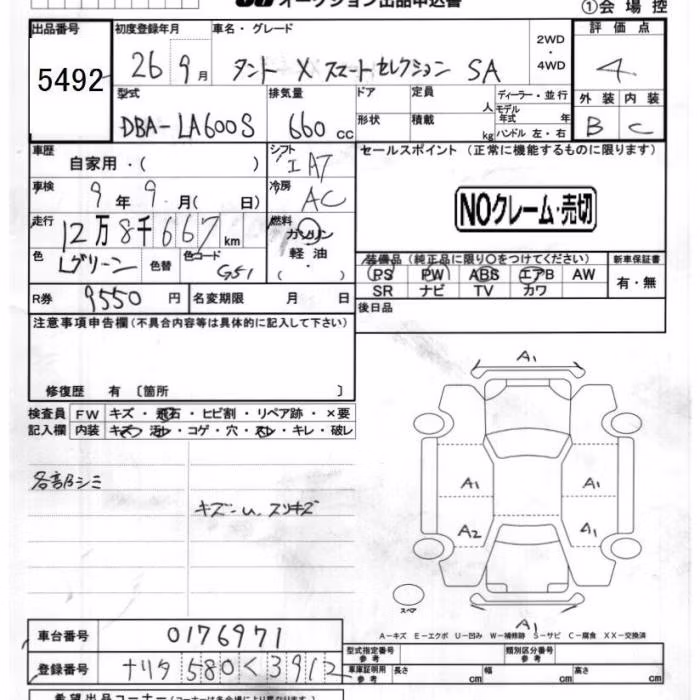 オークション出品申込書
①会場控
出品番号 初度登録年月 車名・グレード 2WD・4WD 評価点
5492 26 9月 タント X スマートセレクション SA 4
型式 排気量 ドア 定員 人 ディーラー・並行 外装 内装
DBA-LA600S 660cc 形状 積載 kg モデル年式 年 ハンドル 左・右 B C
車歴 自家用・( ) シフト IAT セールスポイント (正常に機能するものに限ります)
車検 9年 9月( 日) 冷房 AC
NOクレーム・売切
走行 12万8千667km 燃料 ガソリン 軽油 ( ・ )
色 Lグリーン 色替 色コード G51
装備品 (純正品に限り○をつけてください) 新車保証書
PS PW ABS エアB AW 有・無
SR ナビ TV カワ
R券 9550円 名変期限 月 日 後日品
注意事項申告欄(不具合内容等は具体的に記入して下さい)
修復歴 有 〔箇所 〕
検査員 FW キズ・飛石・ヒビ割・リペア跡・×要
記入欄 内装 キズ・汚レ・コゲ・穴・スレ・キレ・破レ
各部シミ
キズ・ム スリキズ
A1
A1 A1
A2 A1
スペア
A1
A－キズ E－エクボ U－凹み W－補修跡 S－サビ C－腐食 XX－交換済
車台番号 0176971
型式指定番号 参考 類別区分番号 参考
登録番号 ナリタ 580 く 3912
車庫証明用 参考 長さ cm 幅 cm 高さ cm
希望出品コーナー(コーナーは各会場により異なります)